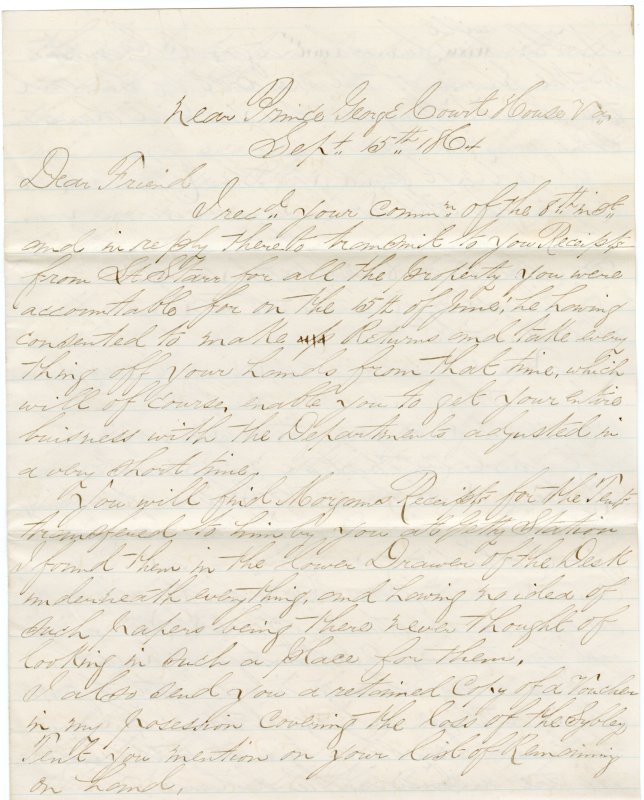 near Prince George Court House Va
Sept. 15th 1864
Dear Friend
I recd. your commn. of the 8th inst.
and in reply thereto transmit to you Receipts
from Lt Starr for all the property you were
accountable for on the 15th of June, he having
consented to make up Returns and take every
thing off your hands from that time, which
will of course, enable you to get your entire
buisness with the Departments adjusted in
a very short time.
You will find Morgans Receipts for the Tents
transfered to him by you at Station
I found them in the lower Drawer of the Desk
underneath everything, and having no idea of
such papers being there never thought of
looking in such a place for them.
I also send you a retained Copy of a Voucher
in my posession covering the loss of the Sybley
Tent you mention on your list of Remaining
on hand.